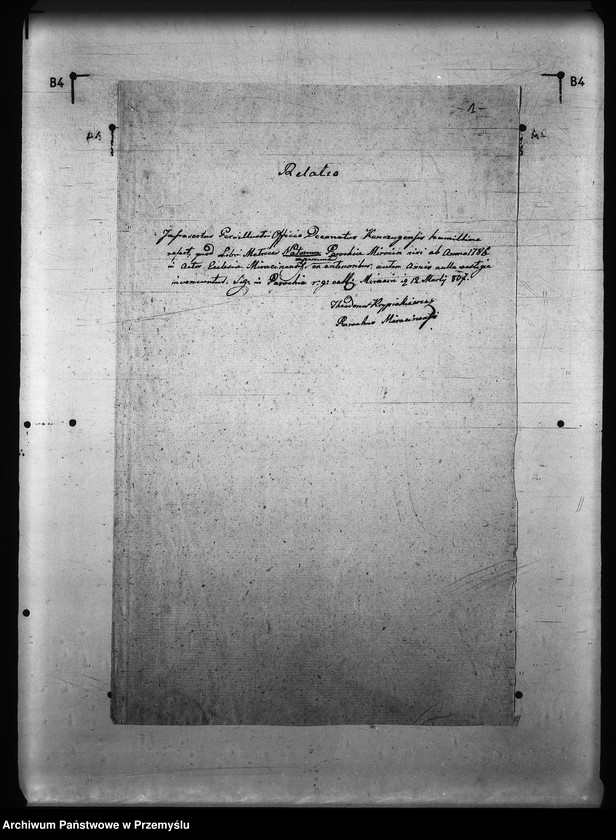 B4
B4
- 1 -
Relatio
Infrascriptus Perillustri Officio Decanatus Kanczugensis humillime
refert, quod Libri Metrices Natorum Parochiae Mirocin nisi ab Anno 1786
in Actis Ecclesiae Mirocinensis, ex anterioribus autem Annis nulla vestigia
inveniuntur. in Parochia r. g. cath. Mirocin 12 Martij
Theodorus Krypiakiewicz
Parochus Mirocinensis
Archiwum Państwowe w Przemyślu